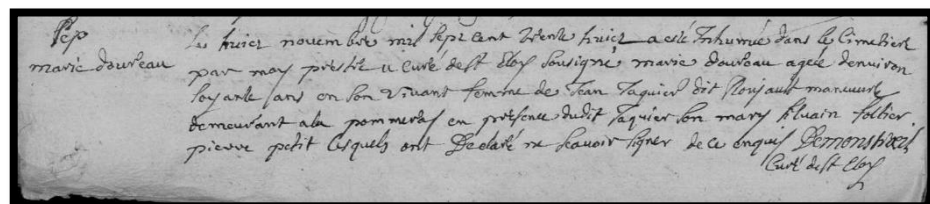 Sep
marie doureau
Le huict novembre mil sept cent trente huict a esté Inhumée dans le Cimetiere
par moy prestre et Curé de st Eloy sousigné marie doureau agee denviron
soixante ans en son vivant femme de Jean Jaquier dit manœuvre
demeurant a la pommeray en présence dudit Jaquier son mary Silvain
pierre petit lesquels ont Declaré ne scavoir signer de ce enquis
Curé de st Eloy